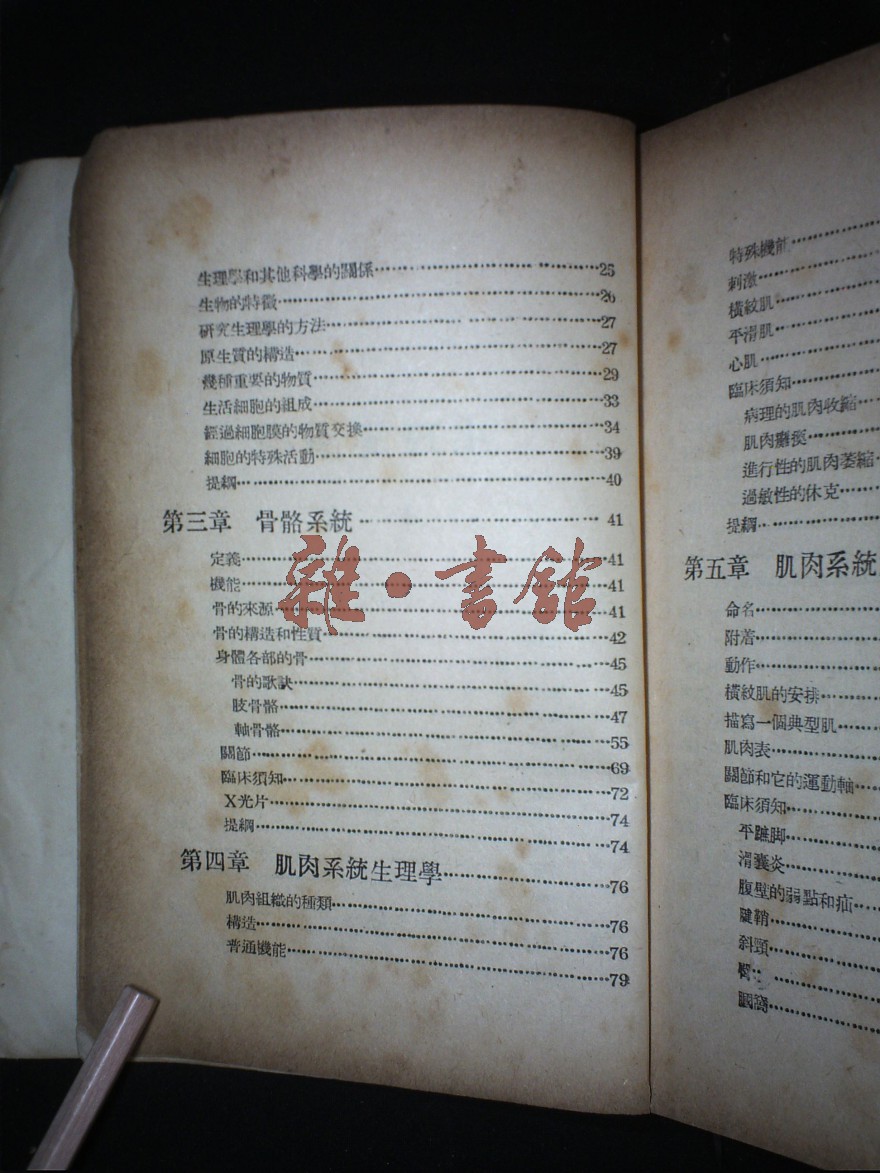 生理學和其他科學的關係…………25
生物的特徵…………26
研究生理學的方法…………27
原生質的構造…………27
幾種重要的物質…………29
生活細胞的組成…………33
經過細胞膜的物質交換…………34
細胞的特殊活動…………39
提綱…………40
第三章 骨骼系統…………41
定義…………41
機能…………41
骨的來源…………41
骨的構造和性質…………42
身體各部的骨…………45
骨的歌訣…………45
肢骨骼…………47
軸骨骼…………55
關節…………69
臨床須知…………72
X光片…………74
提綱…………74
第四章 肌肉系統生理學…………76
肌肉組織的種類…………76
構造…………76
普通機能…………79
雜·書館
特殊機能…………
刺激…………
橫紋肌…………
平滑肌…………
心肌…………
臨床須知…………
病理的肌肉收縮…………
肌肉癱瘓…………
進行性的肌肉萎縮…………
過敏性的休克…………
提綱…………
第五章 肌肉系統
命名…………
附着…………
動作…………
橫紋肌的安排…………
描寫一個典型肌…………
肌肉表…………
關節和它的運動軸…………
臨床須知…………
平蹠脚…………
滑囊炎…………
腹壁的弱點和疝…………
腱鞘…………
斜頸…………
膕窩…………